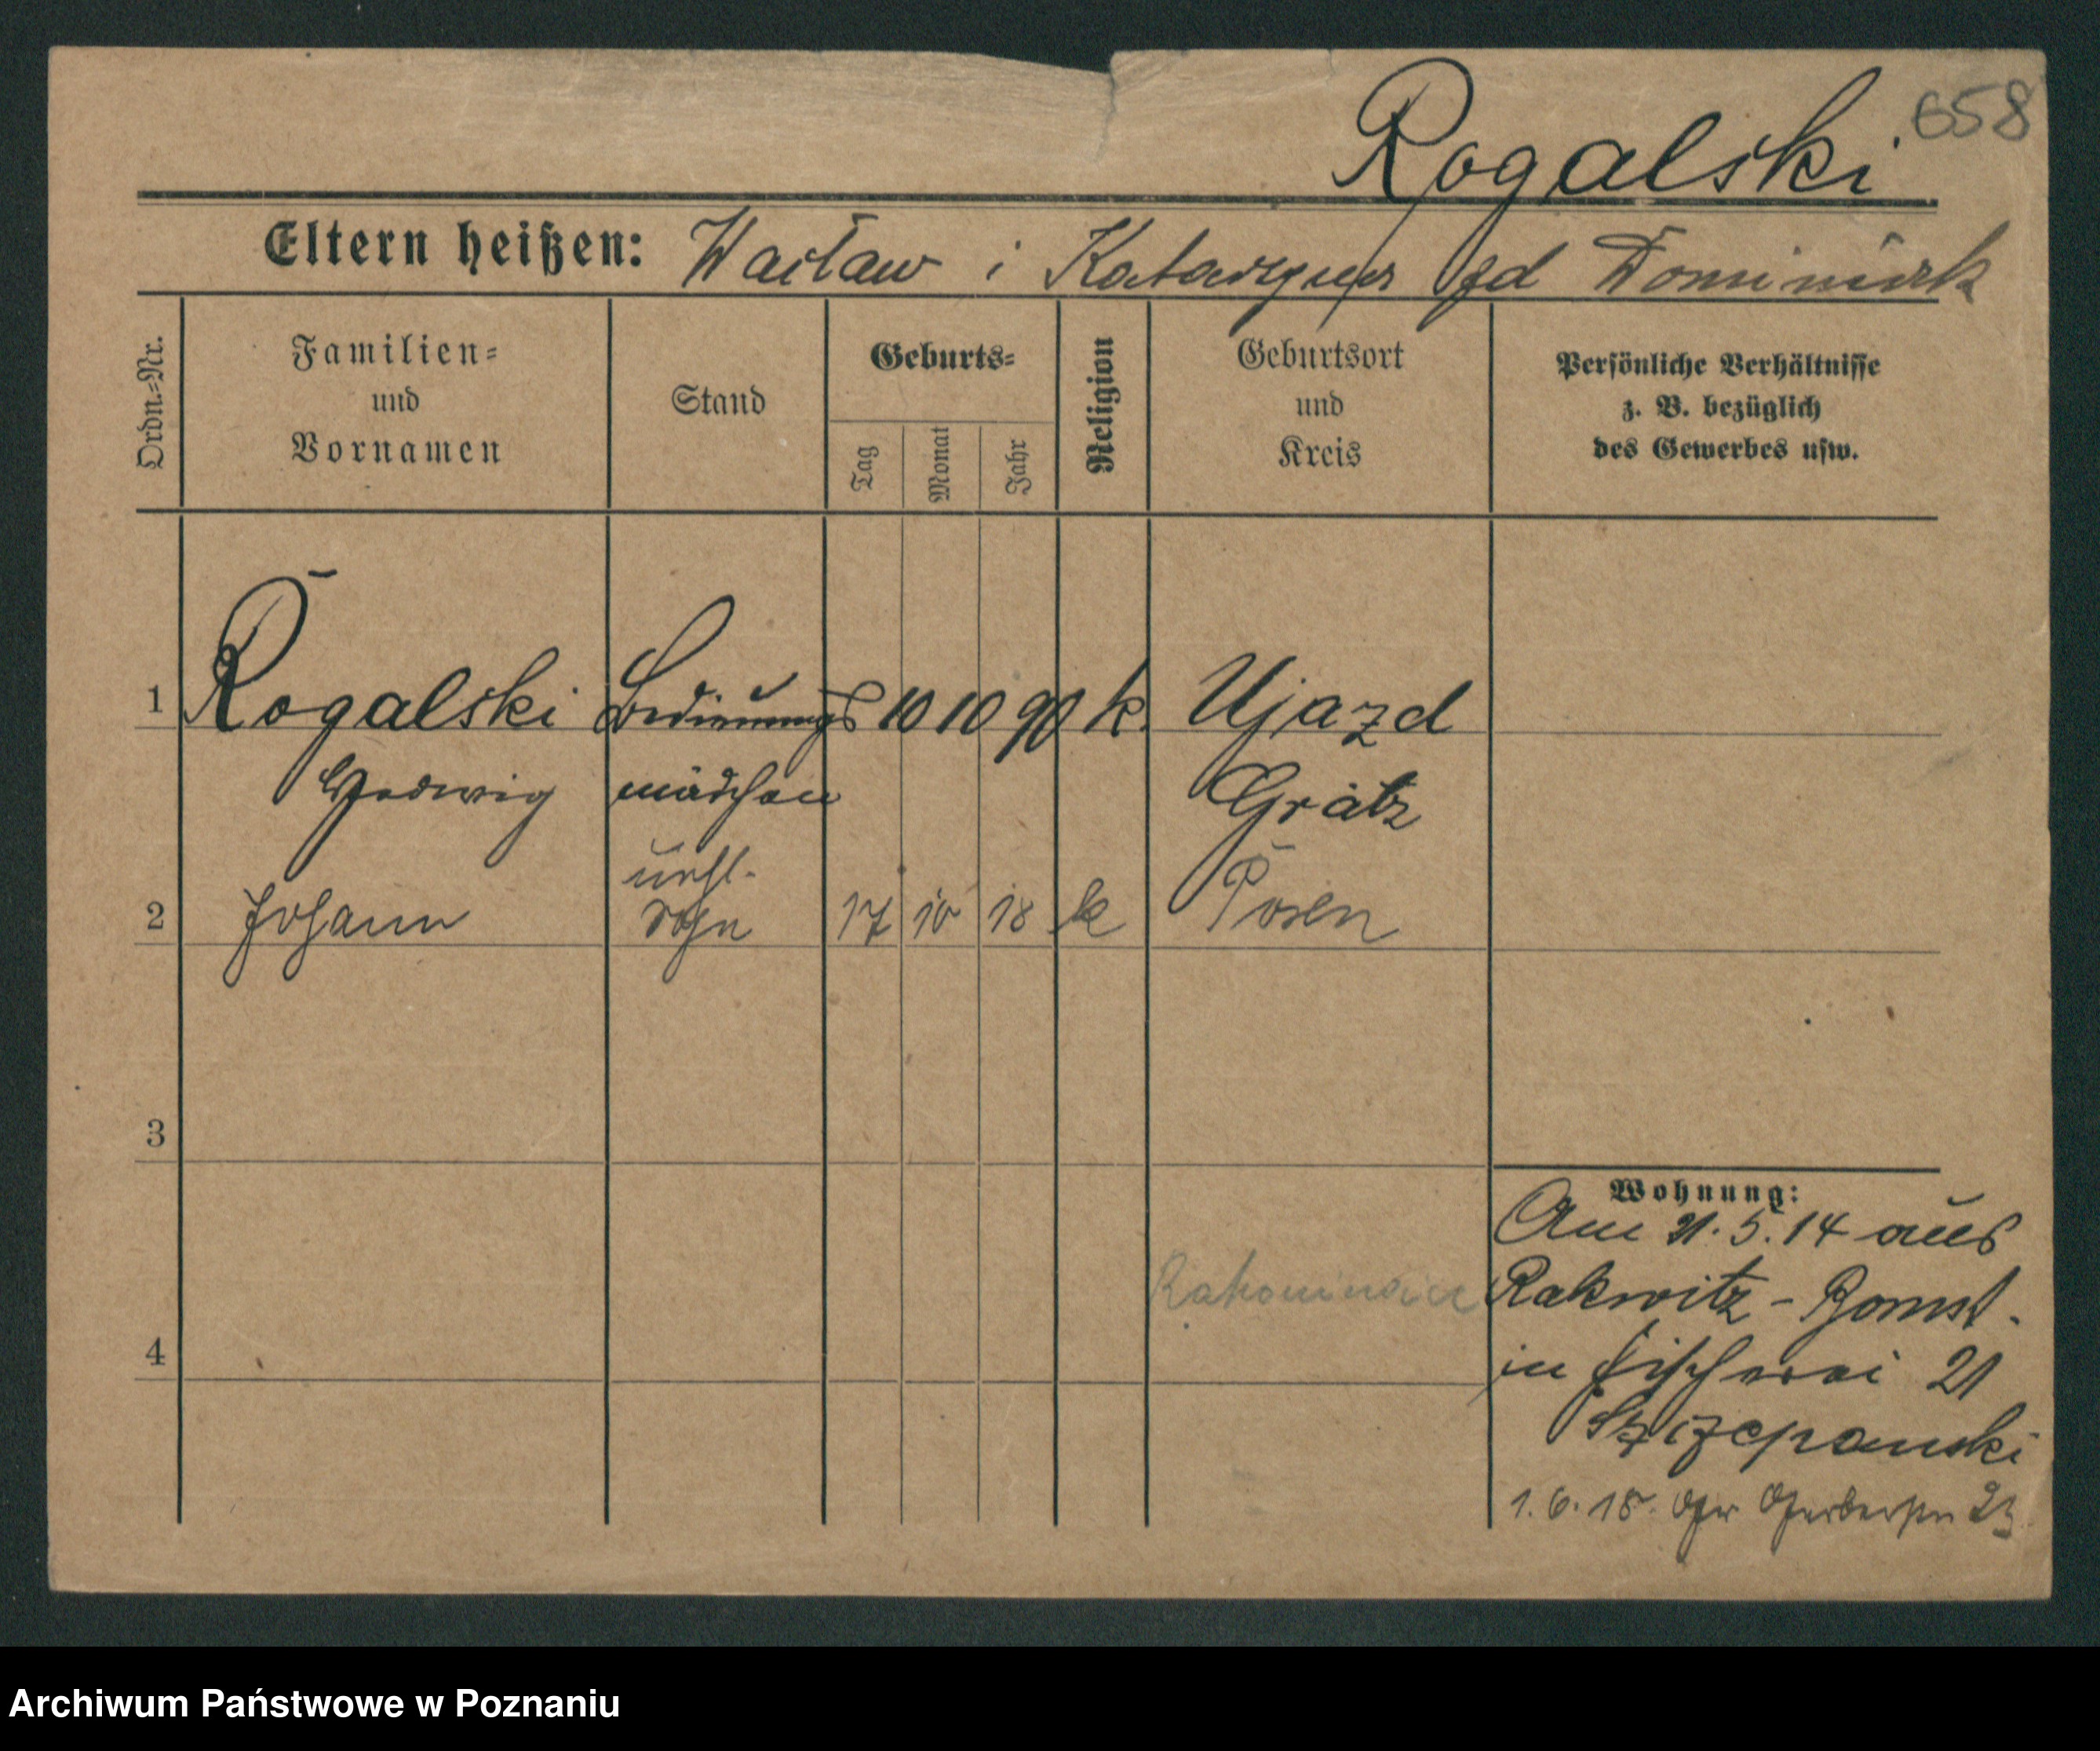 658
Rogalski
Eltern heißen: Wacław i Katarzyna zd Dominiak
Ordn.-Nr.
Familien-
und
Vornamen
Stand
Geburts-
Tag
Monat
Jahr
Religion
Geburtsort
und
Kreis
Persönliche Verhältnisse
z. B. bezüglich
des Gewerbes usw.
1 Rogalski Bedienungs 10 10 90 k. Ujazd
Hedwig mädchen Grätz
unehl.
2 Johann Sohn 17 10 18 k Posen
3
Wohnung:
Am 21.5.14 aus
Rakwitz - Bomst.
in Fischerei 21
4
Szczepanski
1.6.15. Gr Gerberstr 23
Archiwum Państwowe w Poznaniu